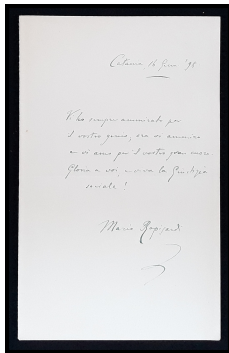 Catania 16 Giu. '95
V'ho sempre ammirato per
il vostro genio, ora vi ammiro
e vi amo per il vostro gran cuore
Gloria a voi, e viva la Giustizia
sociale!
Mario Rapisardi